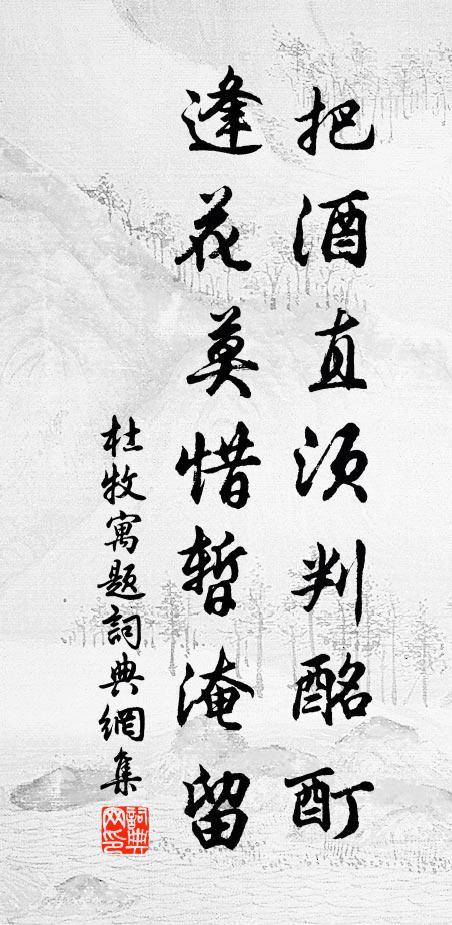 把酒直須判酩酊
逢花莫惜暫淹留
杜牧寓題詞典網集
詞典
网印